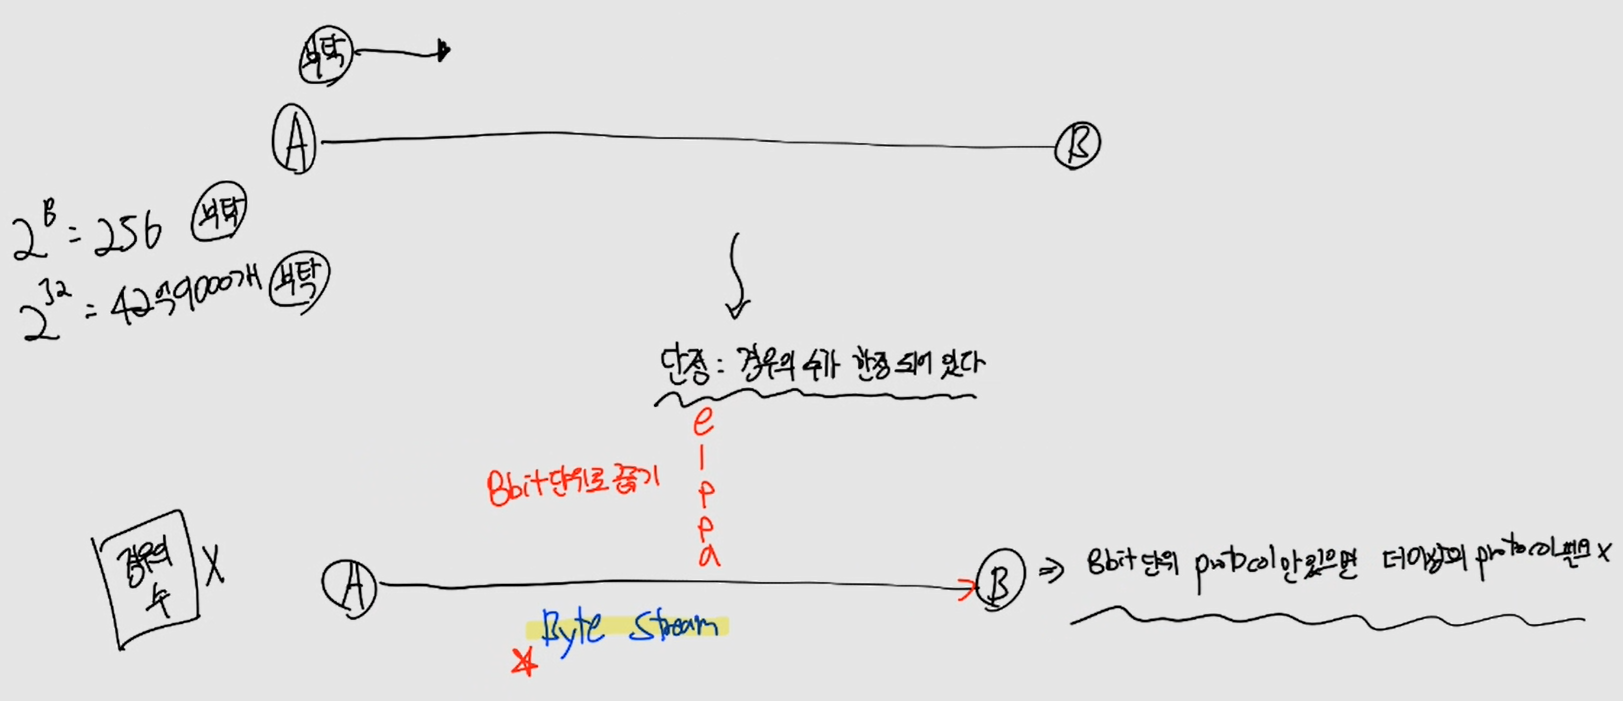 부탁
A
B
2^8 = 256 부탁
2^32 = 42억9000개 부탁
단점 : 경우의 수가 한정 되어 있다
e
l
p
p
a
8bit 단위로 끊기
경우의
수
X
A
B
⇒ 8bit 단위 protocol만 있으면 더이상의 protocol 필요 X
Byte Stream